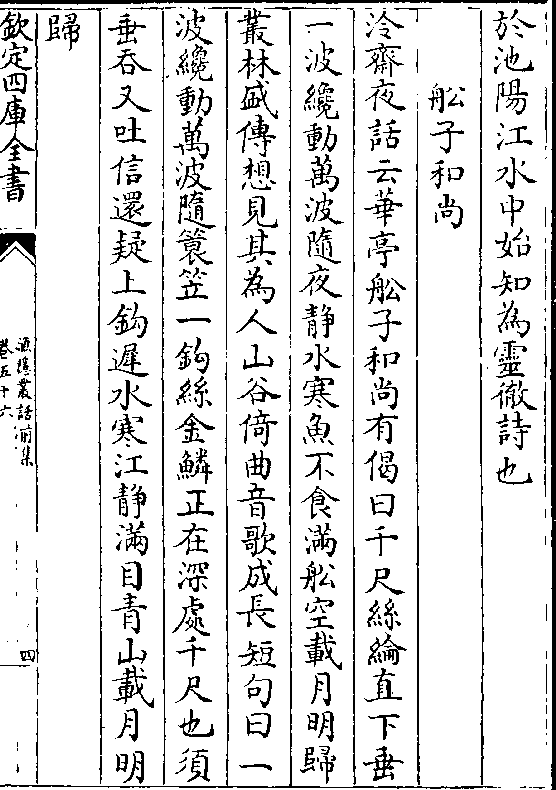 於池陽江水中始知為靈徹詩也
船子和尚
冷齋夜話云華亭船子和尚有偈曰千尺絲綸直下垂
一波纔動萬波隨夜静水寒魚不食滿船空載月明歸
叢林盛傳想見其為人山谷倚曲音歌成長短句曰一
波纔動萬波隨簑笠一鈎絲金鱗正在深處千尺也須
垂吞又吐信還疑上鈎遲水寒江静滿目青山載月明
歸
欽定四庫全書
漁隱叢話前集
卷五十六
四